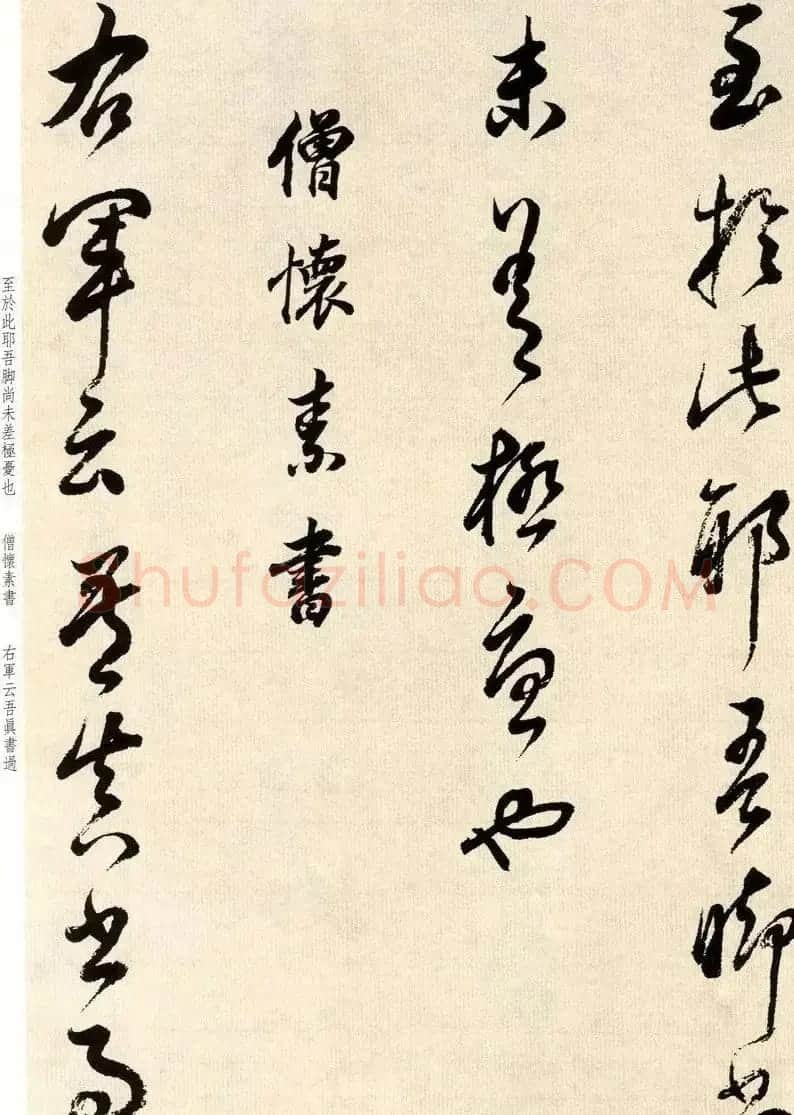 至於此耶吾脚尚
未差極憂也
僧懷素書
右軍云吾真书過
至於此耶吾脚尚未差極憂也 僧懷素書 右軍云吾眞書過
Shufaziliao.COM